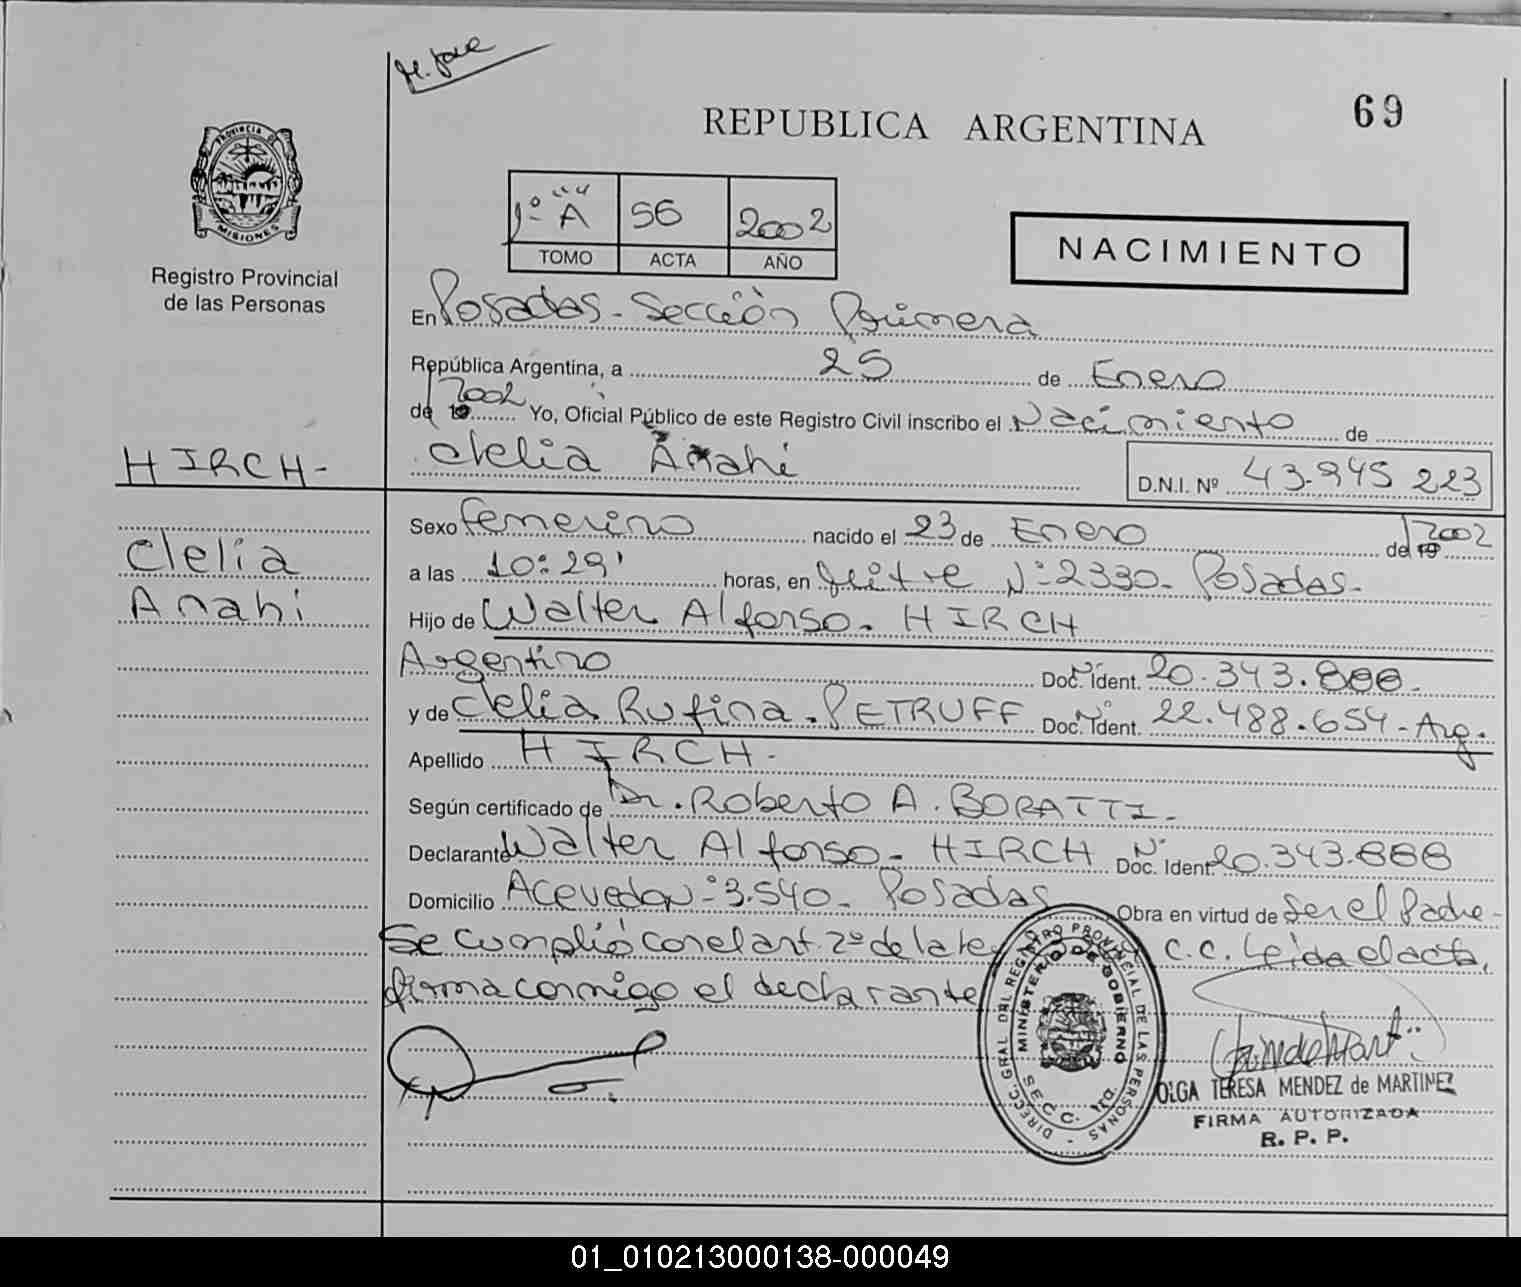 M. José
69
REPUBLICA ARGENTINA
PROVINCIA DE
MISIONES
Registro Provincial
de las Personas
1º "A" 56 2002
TOMO ACTA AÑO
NACIMIENTO
En Posadas - Sección Primera
República Argentina, a 25 de Enero
de 19 2002 Yo, Oficial Público de este Registro Civil inscribo el Nacimiento de
HIRCH -
Clelia Anahi
D.N.I. Nº 43.945 223
Sexo femenino nacido el 23 de Enero de 19 2002
Clelia
Anahi
a las 10:29' horas, en Mitre Nº 2330 - Posadas -
Hijo de Walter Alfonso - HIRCH
Argentino Doc. Ident. Nº 20.343.888 -
y de Clelia Rufina - PETRUFF Doc. Ident. Nº 22.488.654 - Arg.
Apellido HIRCH -
Según certificado de Dr. Roberto A. BORATTI -
Declarante Walter Alfonso - HIRCH Doc. Ident. Nº 20.343.888
Domicilio Acevedo Nº 3.540 - Posadas Obra en virtud de Ser el Padre -
Se cumplió con el art. 2º de la C.C. Leída el acta,
firma conmigo el declarante
DIRECC. GRAL DAL REGISTRO PROVINCIAL DE LAS PERSONAS -
MINISTERIO DE GOBIERNO
SECC. 1RO.
OLGA TERESA MENDEZ de MARTINEZ
FIRMA AUTORIZADA
R. P. P.
01_010213000138-000049